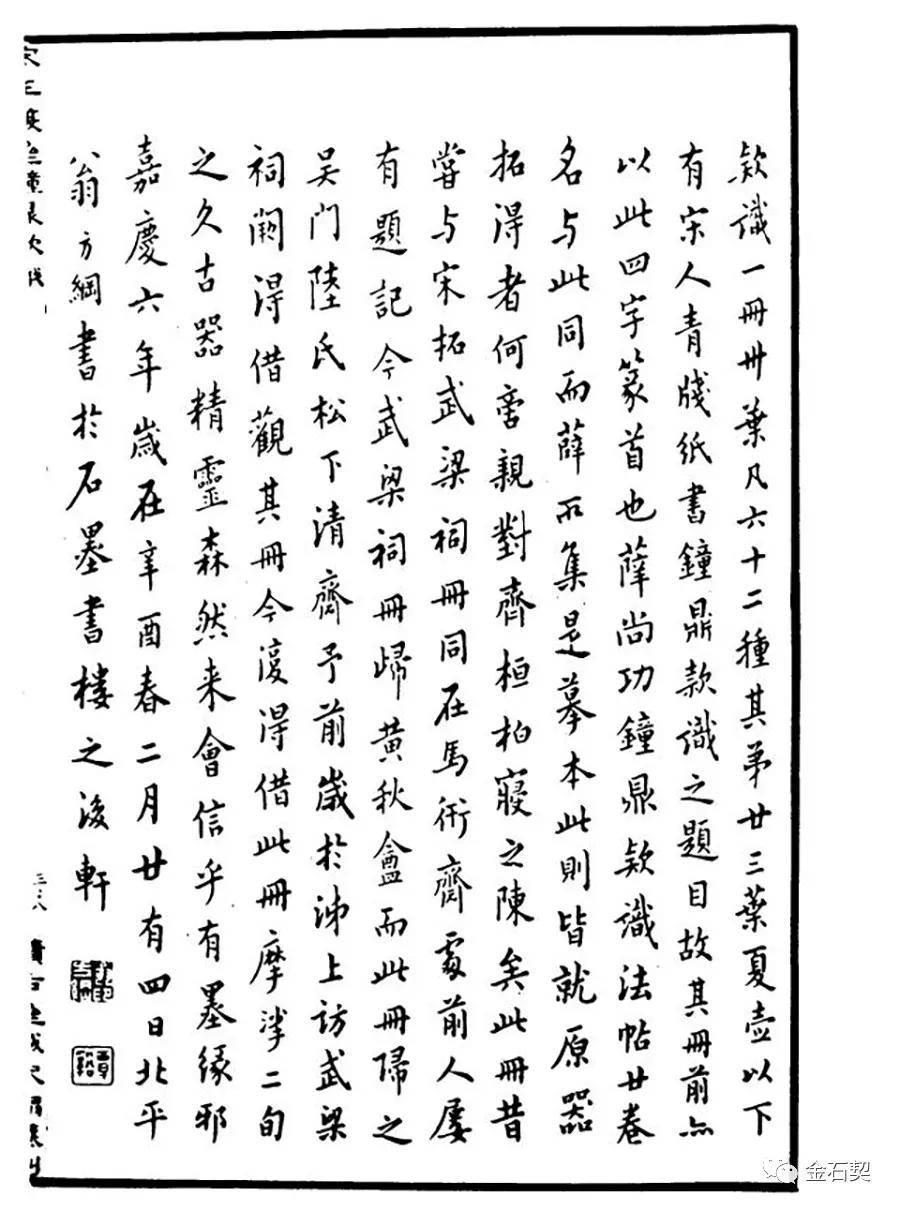 欵識一冊卅葉凡六十二種其弟廿三葉夏壺以下
有宋人青牋紙書鐘鼎款識之題目故其冊前亦
以此四字篆首也薛尚功鐘鼎欵識法帖廿卷
名与此同而薛所集是摹本此則皆就原器
拓得者何啻親對齊桓柏寢之陳矣此冊昔
嘗与宋拓武梁祠冊同在馬衎齋處前人屢
有題記今武梁祠冊歸黃秋盦而此冊歸之
吴门陸氏松下清齋予前歲於沛上訪武梁
祠闕得借觀其冊今復得借此冊摩挲二旬
之久古器精靈森然来會信乎有墨缘邪
嘉慶六年歲在辛酉春二月廿有四日北平
翁方綱書於石墨書樓之後軒
金石契